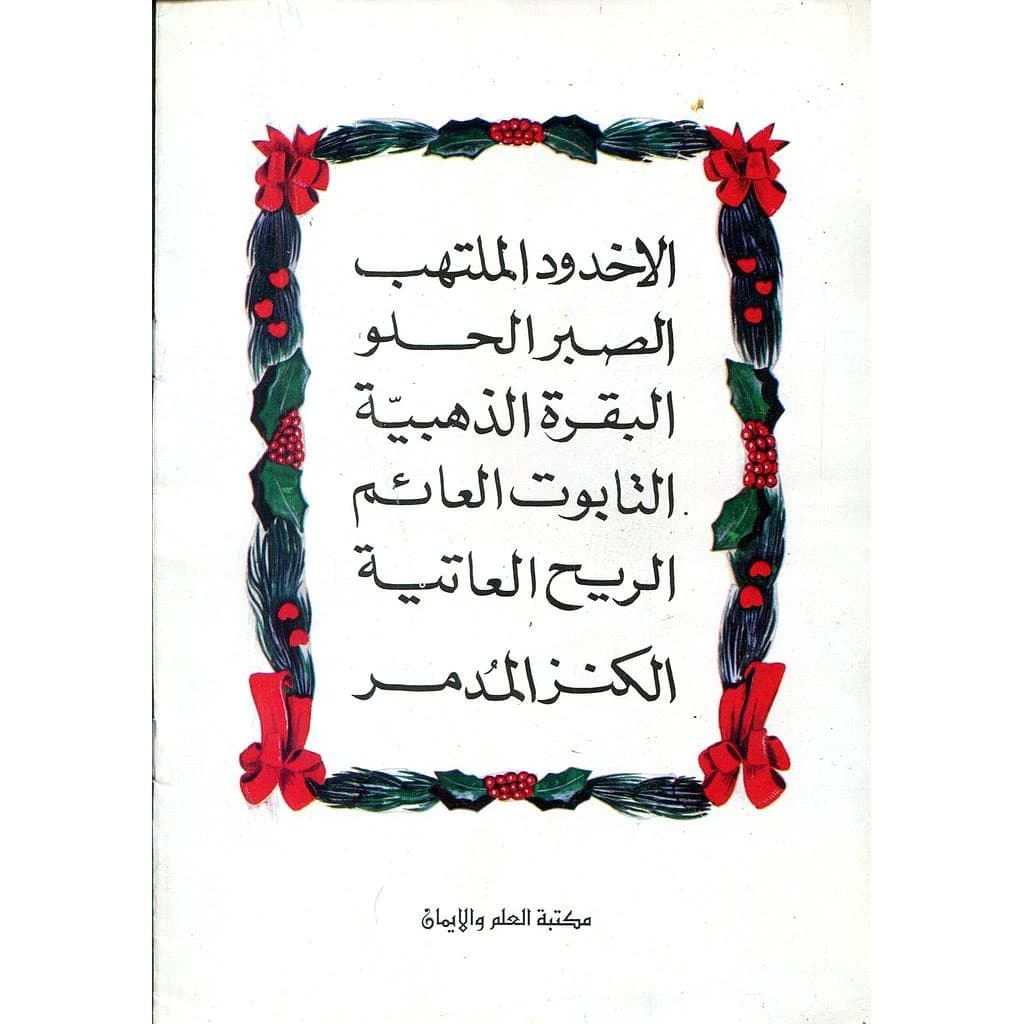 الاخدود الملتهب
الصبر الحلو
البقرة الذهبيّة
التابوت العائم
الريح العاتية
الكنز المُدمر
مكتبة العلم والايمان